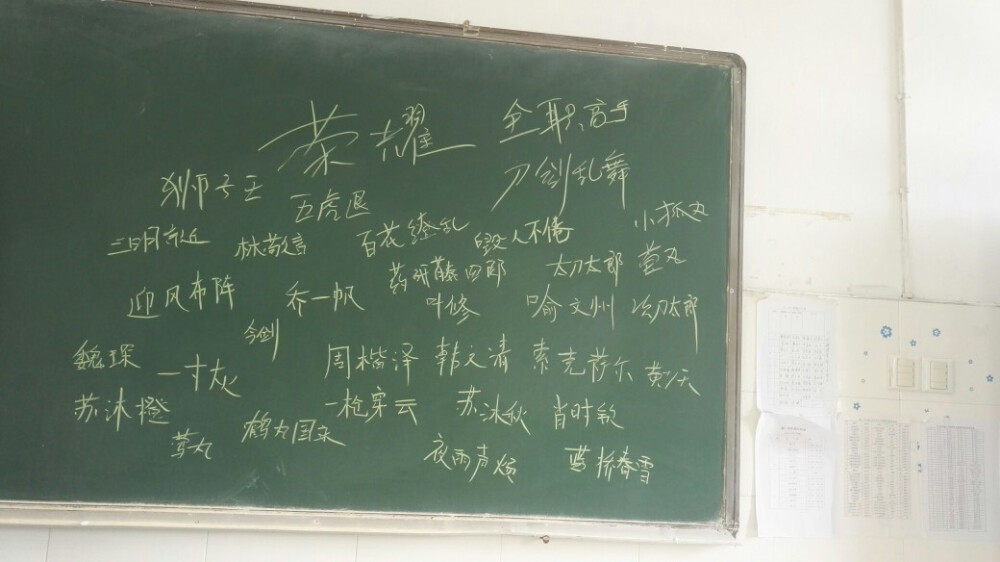 荣耀 全职高手
刀剑乱舞
狮子王 五虎退 小狐丸
三日月宗近 林敬言 百花缭乱 毁人不倦
药研藤四郎 太刀太郎 萤丸
迎风布阵 乔一帆 叶修 喻文州 次郎太郎
今剑
魏琛 一寸灰 周楷泽 韩文清 索克萨尔 黄少天
苏沐橙 一枪穿云 苏沐秋 肖时钦
莺丸 鹤丸国永 夜雨声烦 蓝桥春雪